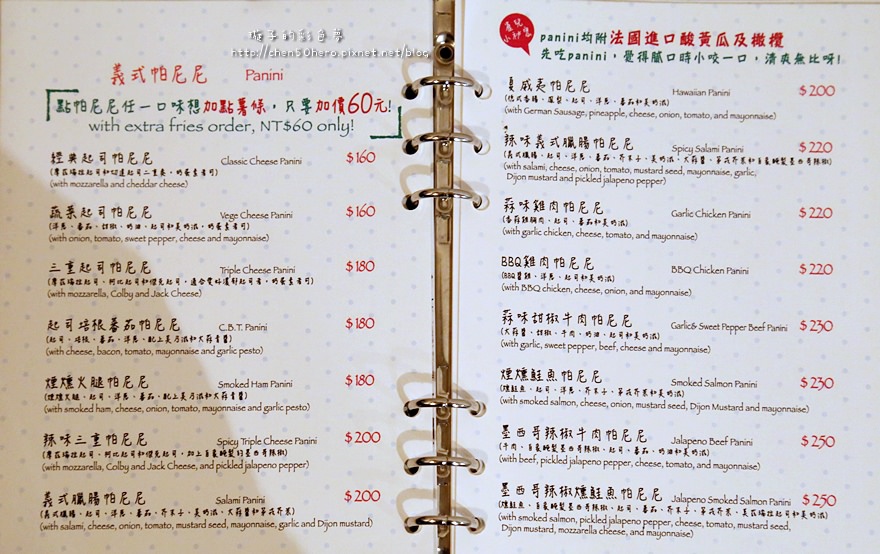 猴子的彩色夢
http://chen50hero.pixnet.net/blog
義式帕尼尼 Panini
點帕尼尼任一口味想加點薯條,只要加價60元!
with extra fries order, NT$60 only!
經典起司帕尼尼 Classic Cheese Panini $160
(摩茲瑞拉起司和切達起司二重奏,奶蛋素者可)
(with mozzarella and cheddar cheese)
蔬菜起司帕尼尼 Vege Cheese Panini $160
(洋蔥、番茄、甜椒、奶油、起司和美奶滋,奶蛋素者可)
(with onion, tomato, sweet pepper, cheese and mayonnaise)
三重起司帕尼尼 Triple Cheese Panini $180
(with mozzarella, Colby and Jack Cheese)
起司培根番茄帕尼尼 C.B.T. Panini $180
(起司、培根、番茄、洋蔥、配上美乃滋和大蒜青醬)
(with cheese, bacon, tomato, mayonnaise and garlic pesto)
煙燻火腿帕尼尼 Smoked Ham Panini $180
(煙燻火腿、起司、洋蔥、番茄、配上美乃滋和大蒜青醬)
(with smoked ham, cheese, onion, tomato, mayonnaise and garlic pesto)
辣味三重帕尼尼 Spicy Triple Cheese Panini $200
(with mozzarella, Colby and Jack Cheese, and pickled jalapeno pepper)
義式臘腸帕尼尼 Salami Panini $200
(義式臘腸、起司、洋蔥、番茄、芥末子、美奶滋、大蒜醬和第戎芥茉)
(with salami, cheese, onion, tomato, mustard seed, mayonnaise, garlic and Dijon mustard)
panini均附法國進口酸黃瓜及橄欖
先吃panini,覺得膩口時小咬一口,清爽無比呀!
夏威夷帕尼尼 Hawaiian Panini $200
(德式香腸、鳳梨、起司、洋蔥、番茄和美奶滋)
(with German Sausage, pineapple, cheese, onion, tomato, and mayonnaise)
辣味義式臘腸帕尼尼 Spicy Salami Panini $220
(義式臘腸、起司、洋蔥、番茄、芥茉子、美奶滋、大蒜醬、第戎芥茉和自家醃製墨西哥辣椒)
(with salami, cheese, onion, tomato, mustard seed, mayonnaise, garlic,
Dijon mustard and pickled jalapeno pepper)
蒜味雞肉帕尼尼 Garlic Chicken Panini $220
(香蒜雞胸肉、起司、番茄和美奶滋)
(with garlic chicken, cheese, tomato, and mayonnaise)
BBQ雞肉帕尼尼 BBQ Chicken Panini $220
(BBQ醬雞、洋蔥、起司和美奶滋)
(with BBQ chicken, cheese, onion, and mayonnaise)
蒜味甜椒牛肉帕尼尼 Garlic& Sweet Pepper Beef Panini $230
(大蒜醬、甜椒、牛肉、奶油、起司和美奶滋)
(with garlic, sweet pepper, beef, cheese and mayonnaise)
煙燻鮭魚帕尼尼 Smoked Salmon Panini $230
(煙鮭魚、起司、洋蔥、芥末子、第戎芥茉和美奶滋)
(with smoked salmon, cheese, onion, mustard seed, Dijon Mustard and mayonnaise)
墨西哥辣椒牛肉帕尼尼 Jalapeno Beef Panini $250
(牛肉、自家醃製墨西哥辣椒、起司、番茄、奶油和美奶滋)
(with beef, pickled jalapeno pepper, cheese, tomato, and mayonnaise)
墨西哥辣椒燻鮭魚帕尼尼 Jalapeno Smoked Salmon Panini $250
(with smoked salmon, pickled jalapeno pepper, cheese, tomato, mustard seed,
Dijon mustard, mozzarella cheese, and mayonnaise)